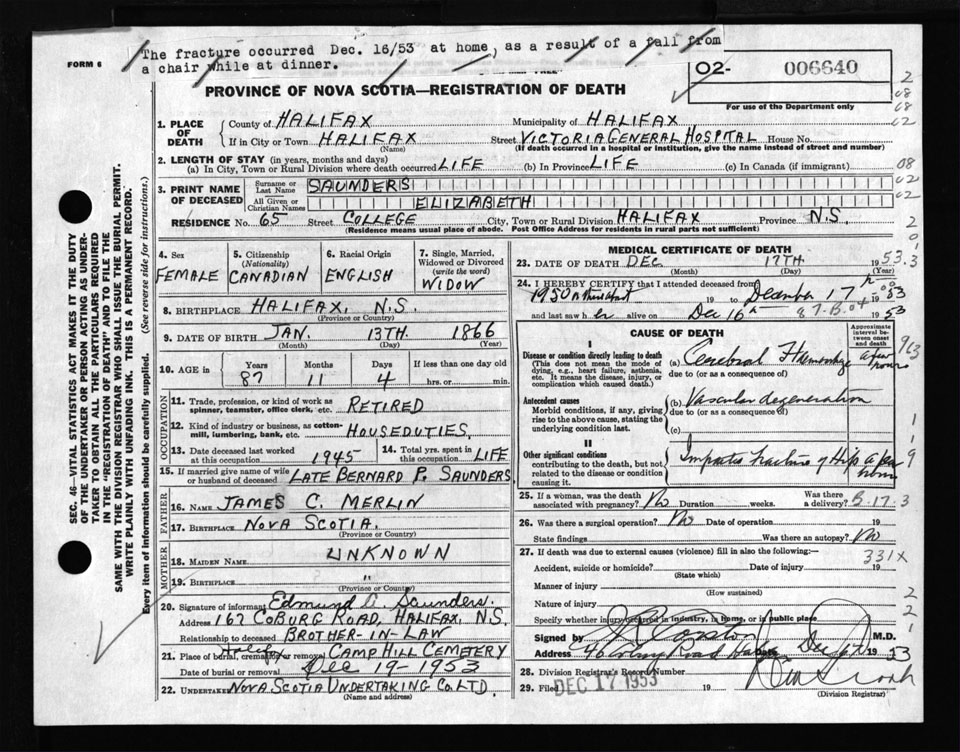 The fracture occurred Dec. 16/53 at home, as a result of a fall from
a chair while at dinner.
FORM 6
02- 006640
For use of the Department only
PROVINCE OF NOVA SCOTIA—REGISTRATION OF DEATH
1. PLACE OF DEATH
County of HALIFAX Municipality of HALIFAX
If in City or Town HALIFAX Street VICTORIA GENERAL HOSPITAL House No.
(Name) (If death occurred in a hospital or institution, give the name instead of street and number)
2. LENGTH OF STAY (in years, months and days)
(a) In City, Town or Rural Division where death occurred LIFE (b) In Province LIFE (c) In Canada (if immigrant)
3. PRINT NAME OF DECEASED
Surname or Last Name SAUNDERS
All Given or Christian Names ELIZABETH
RESIDENCE No. 65 Street COLLEGE City, Town or Rural Division HALIFAX Province N.S.
(Residence means usual place of abode. Post Office Address for residents in rural parts not sufficient)
4. Sex FEMALE
5. Citizenship (Nationality) CANADIAN
6. Racial Origin ENGLISH
7. Single, Married, Widowed or Divorced (write the word) WIDOW
8. BIRTHPLACE HALIFAX, N.S.
(Province or Country)
9. DATE OF BIRTH JAN. 13TH. 1866
(Month) (Day) (Year)
10. AGE in Years 87 Months 11 Days 4 If less than one day old hrs. or min.
OCCUPATION
11. Trade, profession, or kind of work as spinner, teamster, office clerk, etc. RETIRED
12. Kind of industry or business, as cotton-mill, lumbering, bank, etc. HOUSEDUTIES.
13. Date deceased last worked at this occupation 1945
14. Total yrs. spent in this occupation LIFE
15. If married give name of wife or husband of deceased LATE BERNARD P. SAUNDERS
FATHER
16. NAME JAMES C. MERLIN
17. BIRTHPLACE NOVA SCOTIA.
(Province or Country)
MOTHER
18. MAIDEN NAME UNKNOWN
19. BIRTHPLACE "
(Province or Country)
20. Signature of informant Edmund Saunders.
Address 167 COBURG ROAD, HALIFAX, N.S.
Relationship to deceased BROTHER-IN-LAW
21. Place of burial, cremation or removal Halifax CAMP HILL CEMETERY
Date of burial or removal Dec 19-1953
22. UNDERTAKER NOVA SCOTIA UNDERTAKING CO. LTD.
MEDICAL CERTIFICATE OF DEATH
23. DATE OF DEATH DEC 17TH 1953
(Month) (Day) (Year)
24. I HEREBY CERTIFY that I attended deceased from
1950 19 to December 17 1953
and last saw her alive on Dec 16 1953
CAUSE OF DEATH
Approximate interval between onset and death
I
Disease or condition directly leading to death
(This does not mean the mode of dying, e.g., heart failure, asthenia, etc. It means the disease, injury, or complication which caused death.)
(a) Cerebral Hemorrhage a few hours
due to (or as a consequence of)
Antecedent causes
Morbid conditions, if any, giving rise to the above cause, stating the underlying condition last.
(b) Vascular degeneration
due to (or as a consequence of)
(c)
II
Other significant conditions
contributing to the death, but not related to the disease or condition causing it.
Impacted Fracture of Hip a few hours
25. If a woman, was the death associated with pregnancy? No Duration weeks. Was there a delivery?
26. Was there a surgical operation? No Date of operation 19
State findings Was there an autopsy? No
27. If death was due to external causes (violence) fill in also the following:—
331X
Accident, suicide or homicide? Date of injury 19
(State which)
Manner of injury
(How sustained)
Nature of injury
Specify whether injury occurred in industry, in home, or in public place
Signed by M.D.
Address Road Dec 1953
28. Division Registrar's Record Number
29. Filed DEC 17 1953 19
(Division Registrar)
SEC. 46—VITAL STATISTICS ACT MAKES IT THE DUTY
OF THE UNDERTAKER OR PERSON ACTING AS UNDER-
TAKER TO OBTAIN ALL THE PARTICULARS REQUIRED
IN THE "REGISTRATION OF DEATH" AND TO FILE THE
SAME WITH THE DIVISION REGISTRAR WHO SHALL ISSUE THE BURIAL PERMIT.
WRITE PLAINLY WITH UNFADING INK. THIS IS A PERMANENT RECORD.
Every item of Information should be carefully supplied. (See reverse side for instructions.)